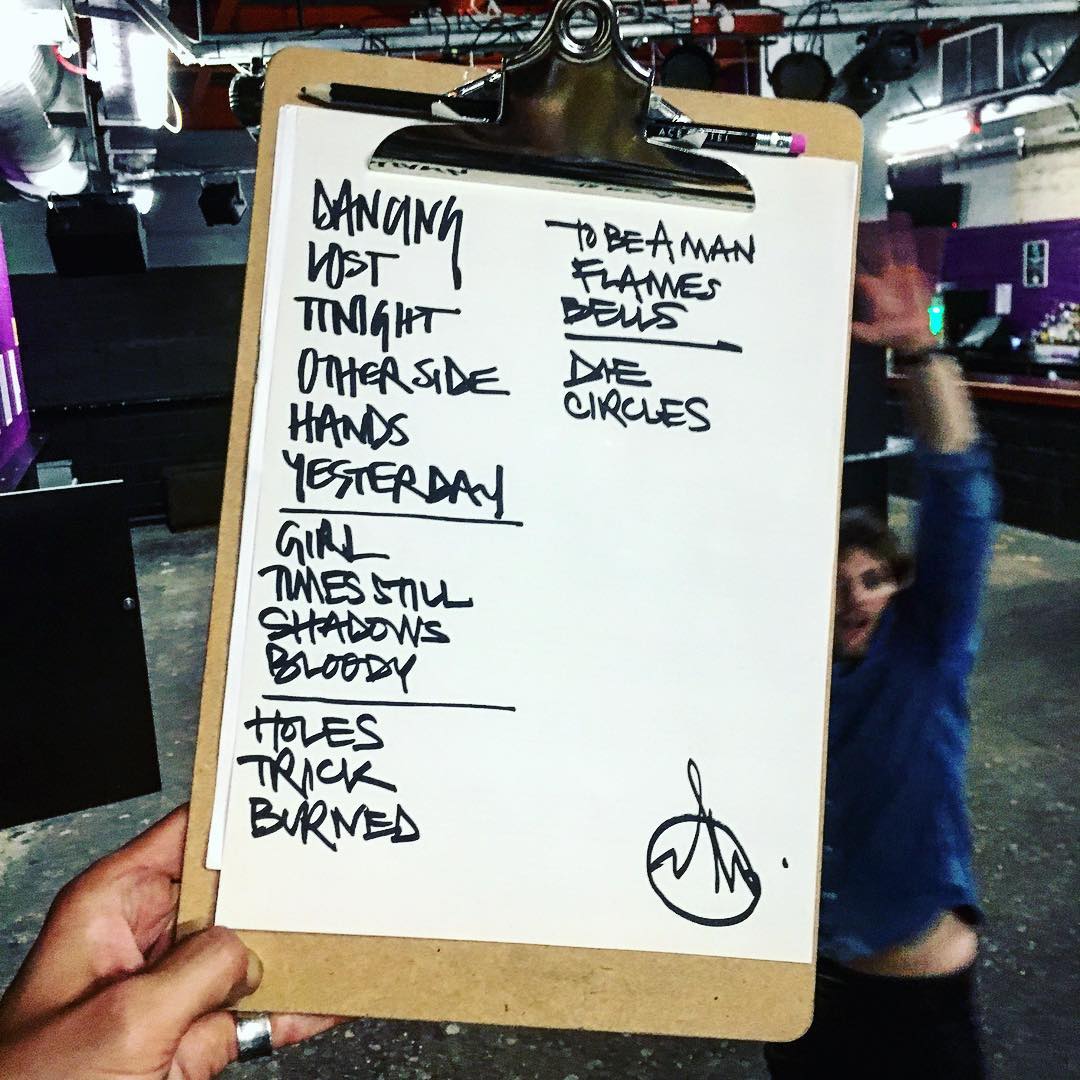 DANCING
LOST
TTNIGHT
OTHERSIDE
HANDS
YESTERDAY
GIRL
TIMES STILL
SHADOWS
BLOODY
HOLES
TRICK
BURNED
TO BE A MAN
FLAMES
BELLS
DIE
CIRCLES